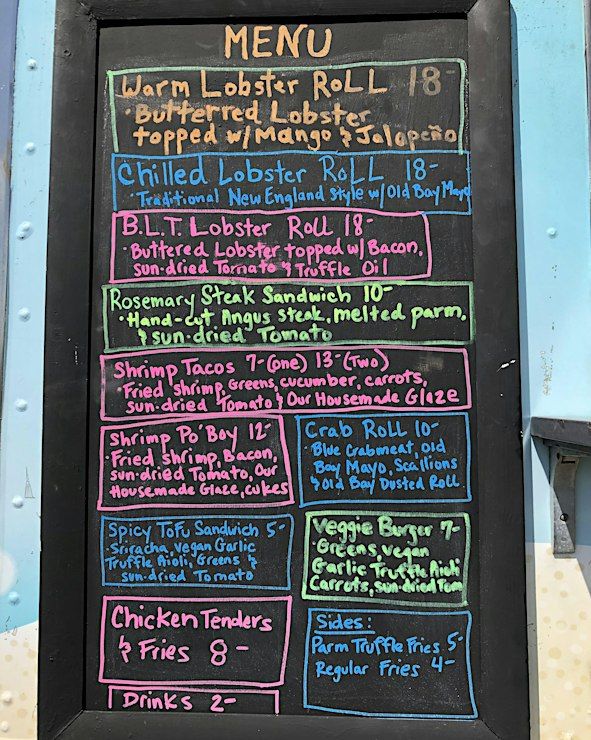 MENU
Warm Lobster Roll 18-
• Butterred Lobster
topped w/ Mango & Jalapeño
Chilled Lobster Roll 18-
• Traditional New England Style w/ Old Bay Mayo
B.L.T. Lobster Roll 18-
• Buttered Lobster topped w/ Bacon,
sun-dried Tomato & Truffle Oil
Rosemary Steak Sandwich 10-
• Hand-cut Angus steak, melted parm,
& sun-dried Tomato
Shrimp Tacos 7-(one) 13-(Two)
• Fried shrimp, Greens, cucumber, carrots,
sun-dried Tomato & Our Housemade Glaze
Shrimp Po' Boy 12-
• Fried shrimp, Bacon,
sun-dried Tomato, Our
Housemade Glaze, cukes
Crab Roll 10-
• Blue Crabmeat, Old
Bay Mayo, Scallions
& Old Bay Dusted Roll
Spicy Tofu Sandwich 5-
• Sriracha, vegan Garlic
Truffle Aioli, Greens, &
sun-dried Tomato
Veggie Burger 7-
• Greens, vegan
Garlic Truffle Aioli
Carrots, sun-dried Tom
Chicken Tenders
& Fries 8-
Sides:
Parm Truffle Fries 5-
Regular Fries 4-
Drinks 2-